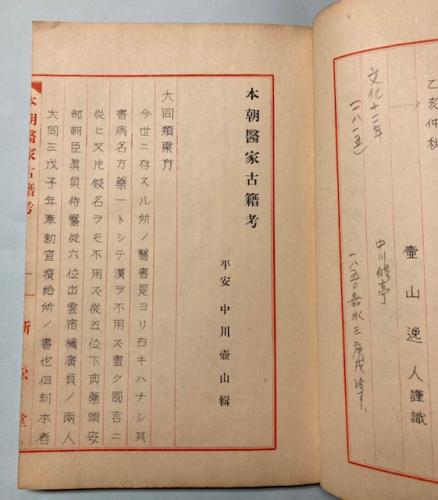 乙亥仲秋
壷山逸人謹識
文化十二年
(一八一五)
中川修亭
一八五〇嘉永三庚戌
本朝醫家古籍考
平安 中川壷山輯
大同類聚方
今世ニ存スル所ノ醫書是ヨリ古キハナシ其
書病名方藥一トシテ漢ヲ不用ス盡ク國言ニ
從ヒ又片假名ヲモ不用ス從五位下典藥頭安
部朝臣眞貞侍醫從六位出雲宿禰廣貞ノ兩人
大同三戊子年奉勅宣撰給所ノ書也但刻本者
本朝醫家古籍考
一